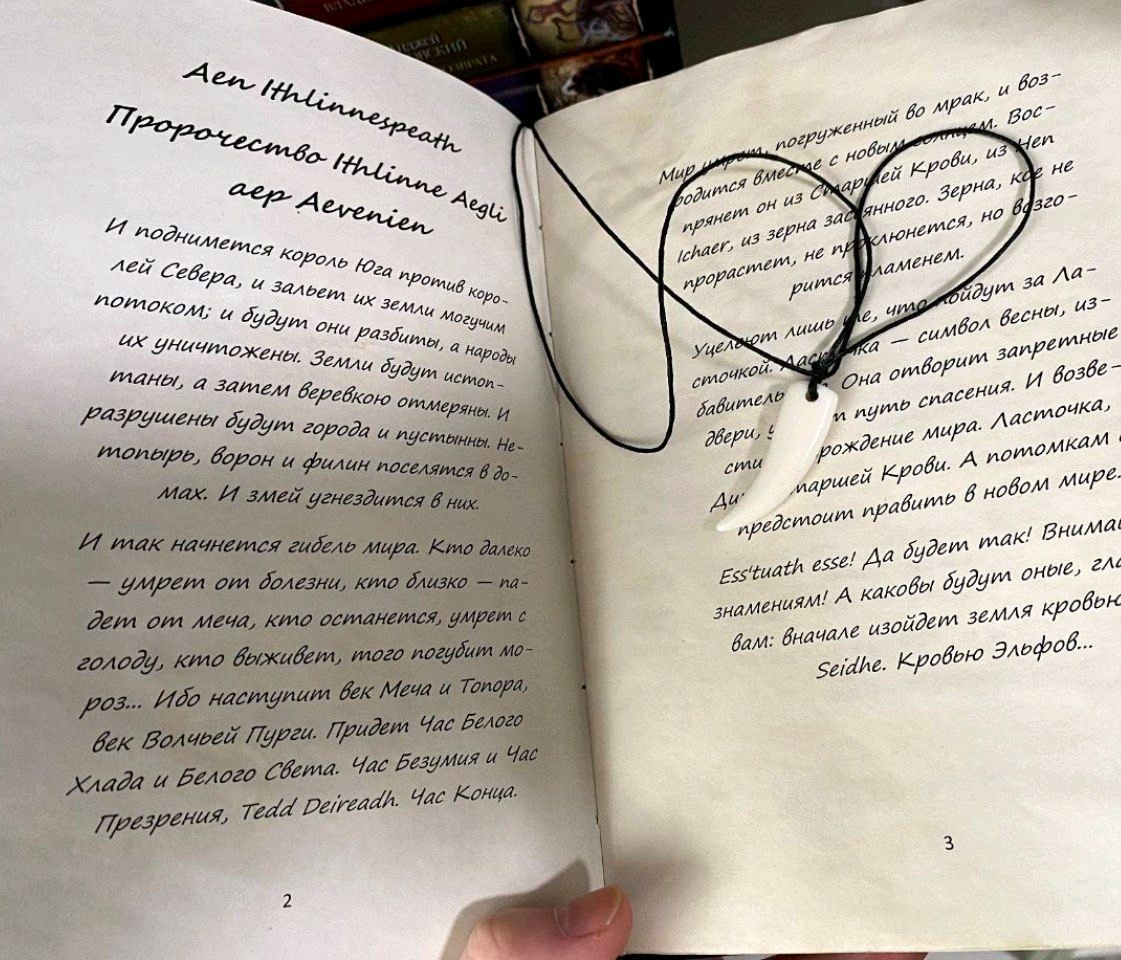 НДЖЕЙ
ОВСКИЙ
Aen Ithlinnespeath
Пророчество Ithlinne Aegli
aep Aevenien
И поднимется король Юга против коро-
лей Севера, и зальет их земли могучим
потоком; и будут они разбиты, а народы
их уничтожены. Земли будут истоп-
таны, а затем веревкою отмеряны. И
разрушены будут города и пустынны. Не-
топырь, ворон и филин поселятся в до-
мах. И змей угнездится в них.
И так начнется гибель мира. Кто далеко
— умрет от болезни, кто близко — па-
дет от меча, кто останется, умрет с
голоду, кто выживет, того погубит мо-
роз... Ибо наступит век Меча и Топора,
век Волчьей Пурги. Придет Час Белого
Хлада и Белого Света. Час Безумия и Час
Презрения, Tedd Deireadh. Час Конца.
2
Мир умрет, погруженный во мрак, и воз-
родится вместе с новым солнцем. Вос-
прянет он из Старшей Крови, из Hen
Ichaer, из зерна засеянного. Зерна, кое не
прорастет, не проклюнется, но возго-
рится пламенем.
Уцелеют лишь те, что пойдут за Ла-
сточкой. Ласточка — символ весны, из-
бавитель Она отворит запретные
двери, путь спасения. И возве-
сти рождение мира. Ласточка,
Старшей Крови. А потомкам
предстоит править в новом мире.
Ess'tuath esse! Да будет так! Внимай
знамениям! А каковы будут оные, гла
вам: вначале изойдет земля кровью
Seidhe. Кровью Эльфов...
3